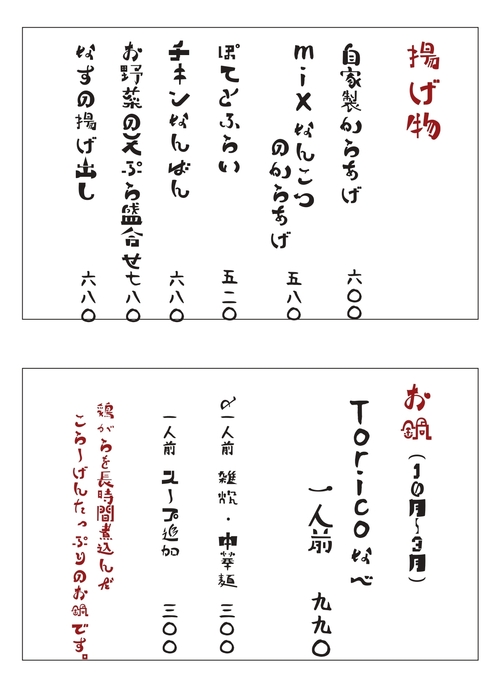 揚げ物
自家製からあげ 六〇〇
mixなんこつ
のからあげ 五八〇
ぽてとふらい 五二〇
チキンなんばん 六八〇
お野菜の天ぷら盛合せ 七八〇
なすの揚げ出し 六八〇
お鍋(10月〜3月)
Toricoなべ
一人前 九九〇
〆一人前 雑炊・中華麺 三〇〇
一人前 スープ追加 三〇〇
鶏がらを長時間煮込んだ
こらーげんたっぷりのお鍋です。